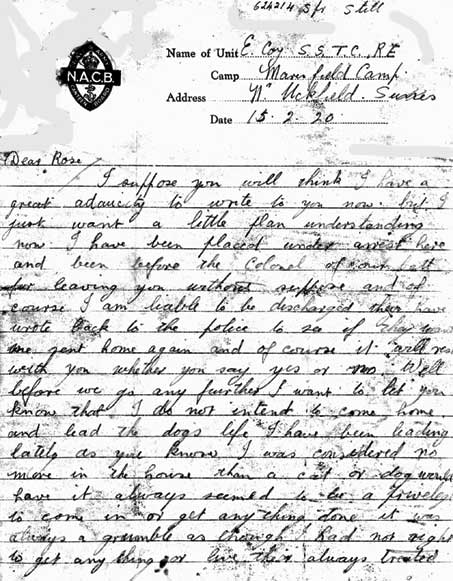 624214 Spr Still
N.A.C.B.
Name of Unit E. Coy S.S.T.C., R.E
Camp Maresfield Camp.
Address Nr Uckfield. Sussex
Date 15.2.20.
Dear Rose
I suppose you will think I have a
great adaucity to write to you now. but I
just want a little plan understanding
now I have been placed under arrest here
and been before the Colonel of
for leaving you without suppose and of
course I am liable to be discharged they have
wrote back to the police to see if they want
me sent home again and of course it will rest
with you whether you say yes or no. Well
before we go any further I want to let you
know that I do not intend to come home
and lead the dogs life I have been leading
lately as you know I was considered no
more in the house than a cat or dog would
have it always seemed to be a
to come in or get any thing done it was
always a grumble as though I had not right
to get any thing or live there always treated